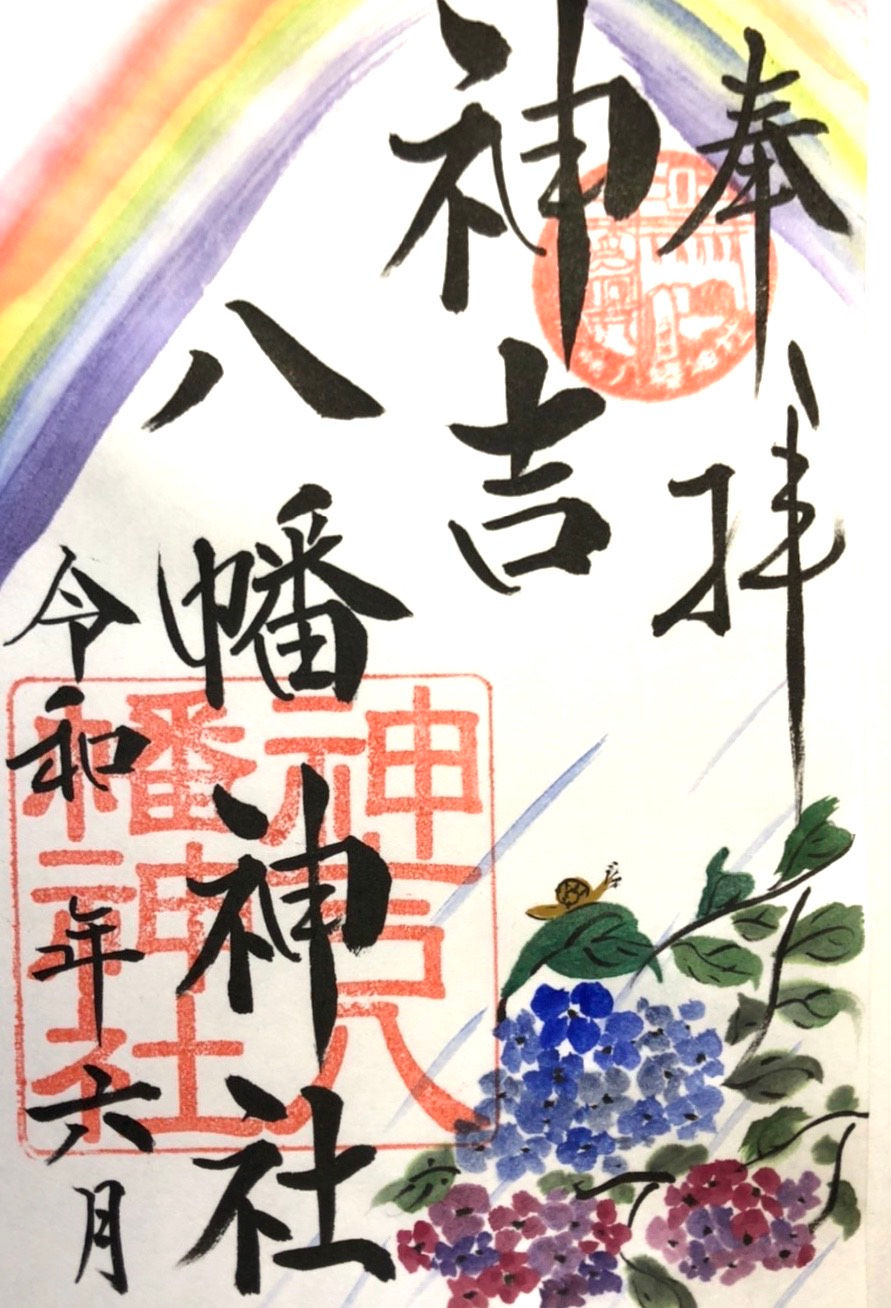 奉拝
神吉
八幡神社
令和 年六月
神吉八
幡神社